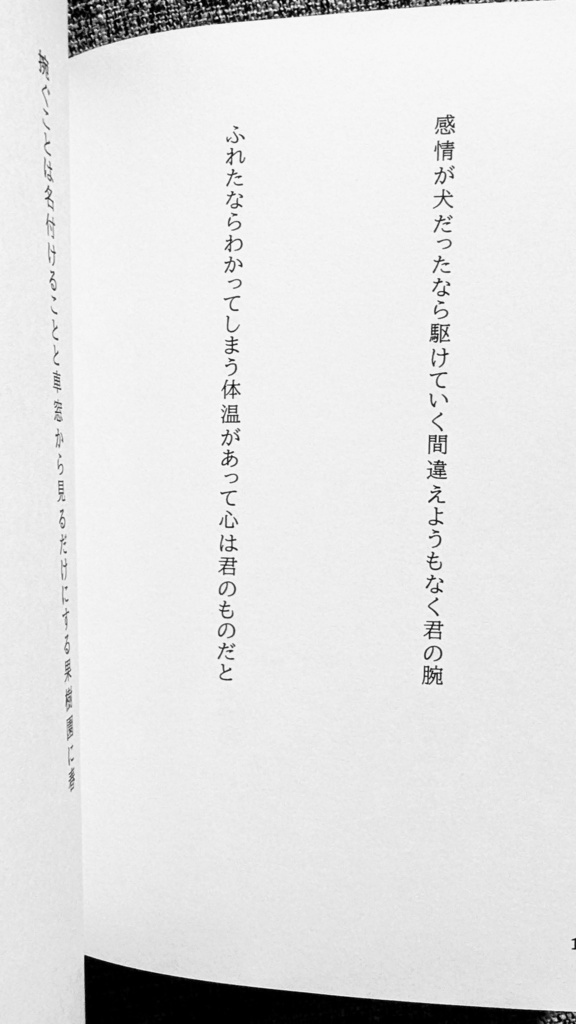 感情が犬だったなら駆けていく間違えようもなく君の腕
ふれたならわかってしまう体温があって心は君のものだと
捥ぐことは名付けることと車窓から見るだけにする果樹園に春